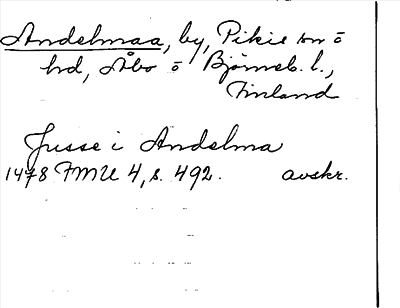 Andelmaa, by, Pikie sn o
hd, Åbo o Björneb. l.,
Finland
Jusse i Andelma
1478 FMU 4, s. 492. avskr.